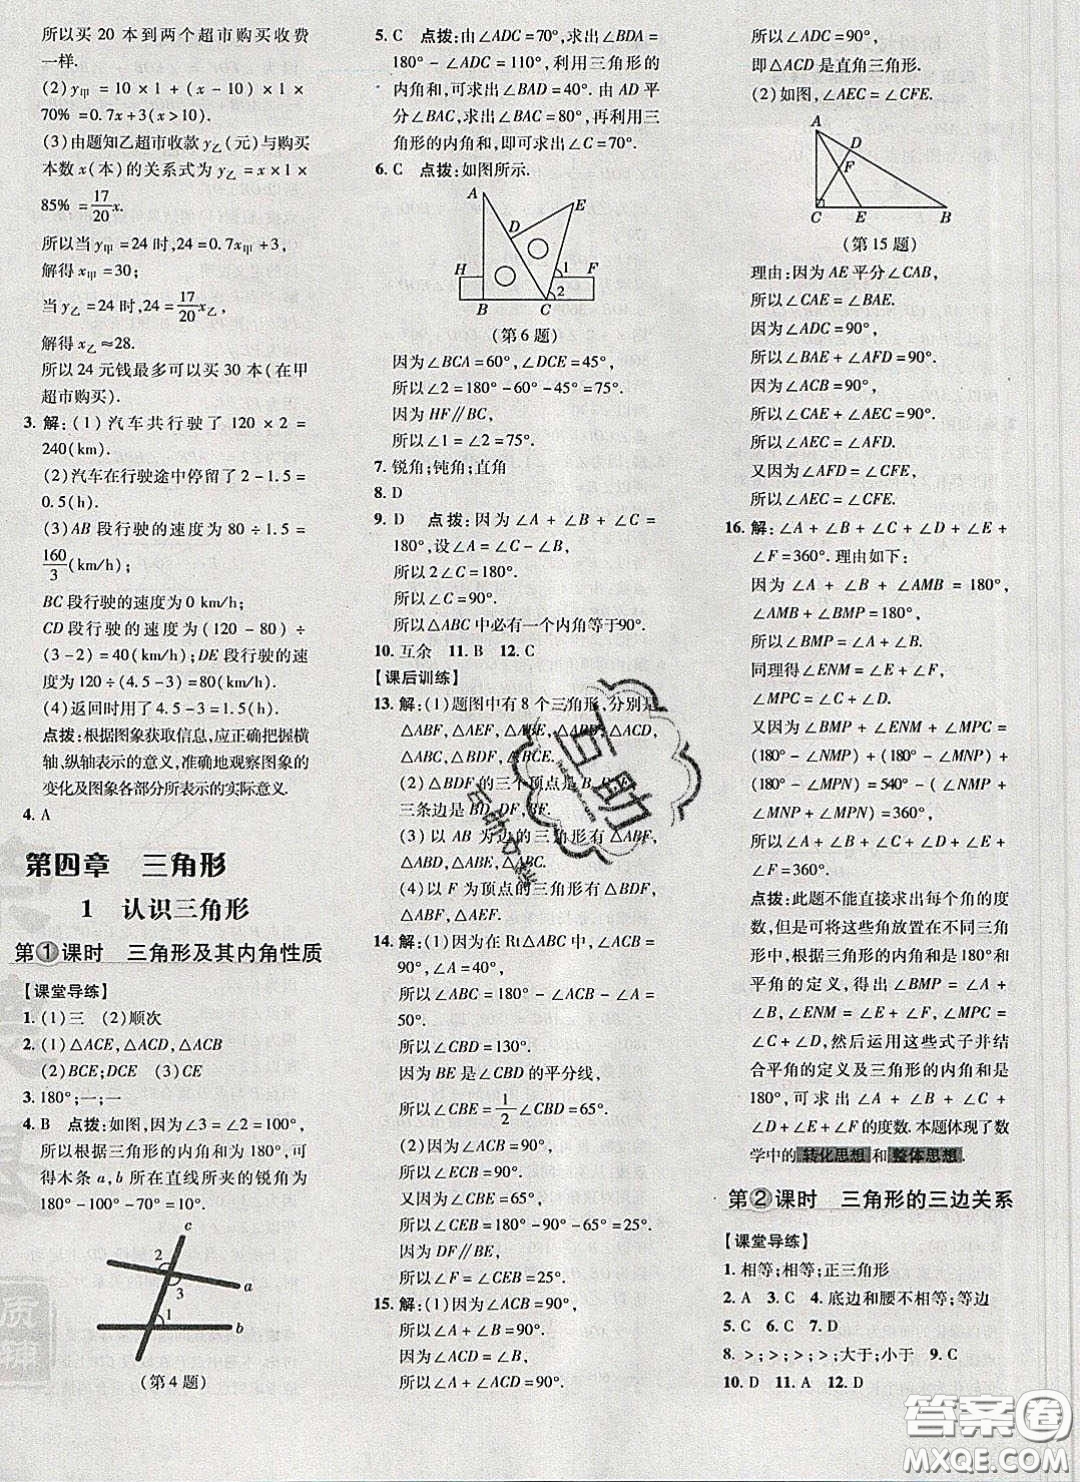 所以买 20 本到两个超市购买收费
一样.
(2)y甲 = 10 × 1 + (x − 10) × 1 ×
70% = 0.7x + 3(x > 10).
(3)由题知乙超市收款 y乙(元)与购买
本数 x(本)的关系式为 y乙 = x × 1 ×
85% = 17/20 x.
所以当 y甲 = 24 时, 24 = 0.7x甲 + 3,
解得 x甲 = 30;
当 y乙 = 24 时, 24 = 17/20 x乙,
解得 x乙 ≈ 28.
所以 24 元钱最多可以买 30 本(在甲
超市购买).
3. 解:(1)汽车共行驶了 120 × 2 =
240(km).
(2)汽车在行驶途中停留了 2 − 1.5 =
0.5(h).
(3)AB 段行驶的速度为 80 ÷ 1.5 =
160/3(km/h);
BC 段行驶的速度为 0 km/h;
CD 段行驶的速度为(120 − 80) ÷
(3 − 2) = 40(km/h);DE 段行驶的速
度为 120 ÷ (4.5 − 3) = 80(km/h).
(4)返回时用了 4.5 − 3 = 1.5(h).
点拨:根据图象获取信息,应正确把握横
轴、纵轴表示的意义,准确地观察图象的
变化及图象各部分所表示的实际意义.
4. A
第四章 三角形
1 认识三角形
第①课时 三角形及其内角性质
【课堂导练】
1. (1)三 (2)顺次
2. (1)△ACE,△ACD,△ACB
(2)BCE;DCE (3)CE
3. 180°;一;一
4. B 点拨:如图,因为∠3 = ∠2 = 100°,
所以根据三角形的内角和为 180°,可
得木条 a,b 所在直线所夹的锐角为
180° − 100° − 70° = 10°.
c
2
3
a
1
b
(第 4 题)
5. C 点拨:由∠ADC = 70°,求出∠BDA =
180° − ∠ADC = 110°,利用三角形的
内角和,求出∠BAD = 40°. 由 AD 平
分∠BAC,求出∠BAC = 80°,再利用三
角形的内角和,即可求出∠C = 70°.
6. C 点拨:如图所示.
A
E
D
H
1
F
2
B
C
(第 6 题)
因为∠BCA = 60°,∠DCE = 45°,
所以∠2 = 180° − 60° − 45° = 75°.
因为 HF∥BC,
所以∠1 = ∠2 = 75°.
7. 锐角;钝角;直角
8. D
9. D 点拨:因为∠A + ∠B + ∠C =
180°,设∠A + ∠B = ∠C,
所以 2∠C = 180°.
所以∠C = 90°.
所以△ABC 中必有一个内角等于90°.
10. 互余 11. B 12. C
【课后训练】
13. 解:(1)题图中有 8 个三角形,分别是
△ABF,△AEF,△ABE,△ABD,△ACD,
△ABC,△BDF,△BCE.
(2)△BDF 的三个顶点是 B,D,F,
三条边是 BD,DF,BF.
(3)以 AB 为边的三角形有△ABF,
△ABD,△ABE,△ABC.
(4)以 F 为顶点的三角形有△ABF,
△BDF,△AEF.
14. 解:(1)因为在 Rt△ABC 中,∠ACB =
90°,∠A = 40°,
所以∠ABC = 180° − ∠ACB − ∠A =
50°.
所以∠CBD = 130°.
因为 BE 是∠CBD 的平分线,
所以∠CBE = 1/2∠CBD = 65°.
(2)因为∠ACB = 90°,
所以∠ECB = 90°.
又因为∠CBE = 65°,
所以∠CEB = 180° − 90° − 65° = 25°.
因为 DF∥BE,
所以∠F = ∠CEB = 25°.
15. 解:(1)因为∠ACB = 90°,
所以∠A + ∠B = 90°.
因为∠ACD = ∠B,
所以∠A + ∠ACD = 90°.
所以∠ADC = 90°,
即△ACD 是直角三角形.
(2)如图,∠AEC = ∠CFE.
A
D
F
C
E
B
(第 15 题)
理由:因为 AE 平分∠CAB,
所以∠CAE = ∠BAE.
因为∠ADC = 90°,
所以∠BAE + ∠AFD = 90°.
因为∠ACB = 90°,
所以∠CAE + ∠AEC = 90°.
所以∠AFD = ∠AEC.
又因为∠AFD = ∠CFE,
所以∠AEC = ∠CFE.
16. 解:∠A + ∠B + ∠C + ∠D + ∠E +
∠F = 360°. 理由如下:
因为∠A + ∠B + ∠AMB = 180°,
∠AMB + ∠BMP = 180°,
所以∠BMP = ∠A + ∠B.
同理得∠ENM = ∠E + ∠F,
∠MPC = ∠C + ∠D.
又因为∠BMP + ∠ENM + ∠MPC =
(180° − ∠NMP) + (180° − ∠MNP) +
(180° − ∠MPN) = 540° − (∠NMP +
∠MNP + ∠MPN) = 360°,
所以∠A + ∠B + ∠C + ∠D + ∠E +
∠F = 360°.
点拨:此题不能直接求出每个角的度
数,但可将这些角放置在不同三角形
中,根据三角形的内角和是 180°和
平角的定义,得出∠BMP = ∠A +
∠B,∠ENM = ∠E + ∠F,∠MPC =
∠C + ∠D,然后运用这些式子并结
合平角的定义及三角形的内角和是
180°,可求出∠A + ∠B + ∠C +
∠D + ∠E + ∠F 的度数.本题体现了数
学中的转化思想和整体思想.
第②课时 三角形的三边关系
【课堂导练】
1. 相等;相等;正三角形
2. A 3. C 4. 底边和腰不相等;等边
5. C 6. C 7. D
8. >;>;>;>;大于;小于 9. C
10. D 11. A 12. D
互助
答案圈
MXQE.COM